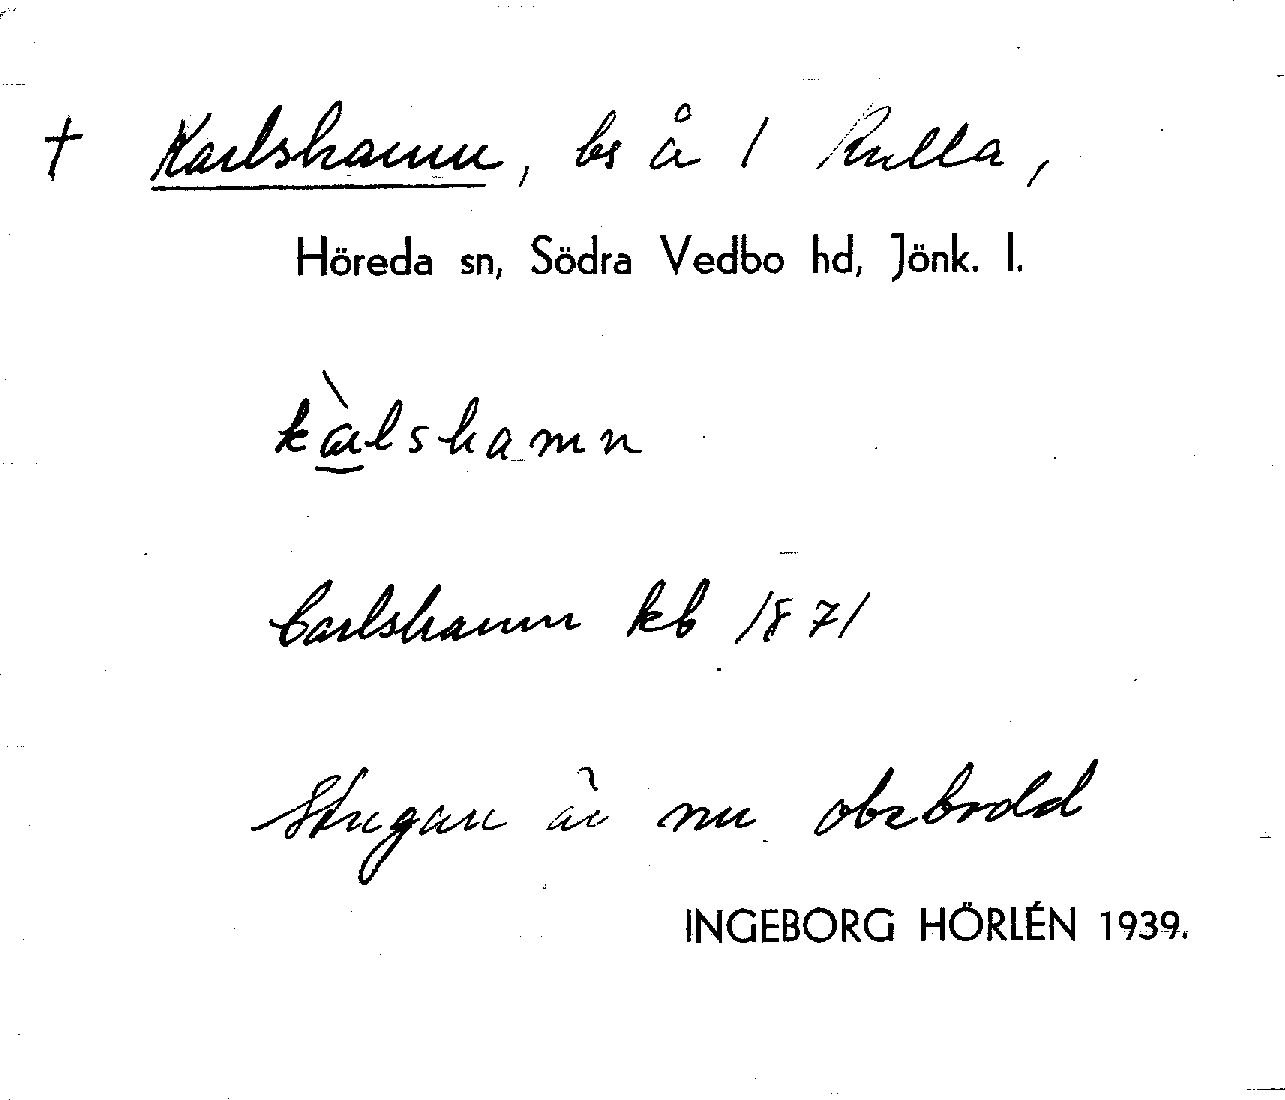 † Karlshamn, bs å 1 Kulla,
Höreda sn, Södra Vedbo hd, Jönk. l.
kàlshamn
Carlshamn kb 1871
Stugan är nu obebodd
INGEBORG HÖRLÉN 1939.